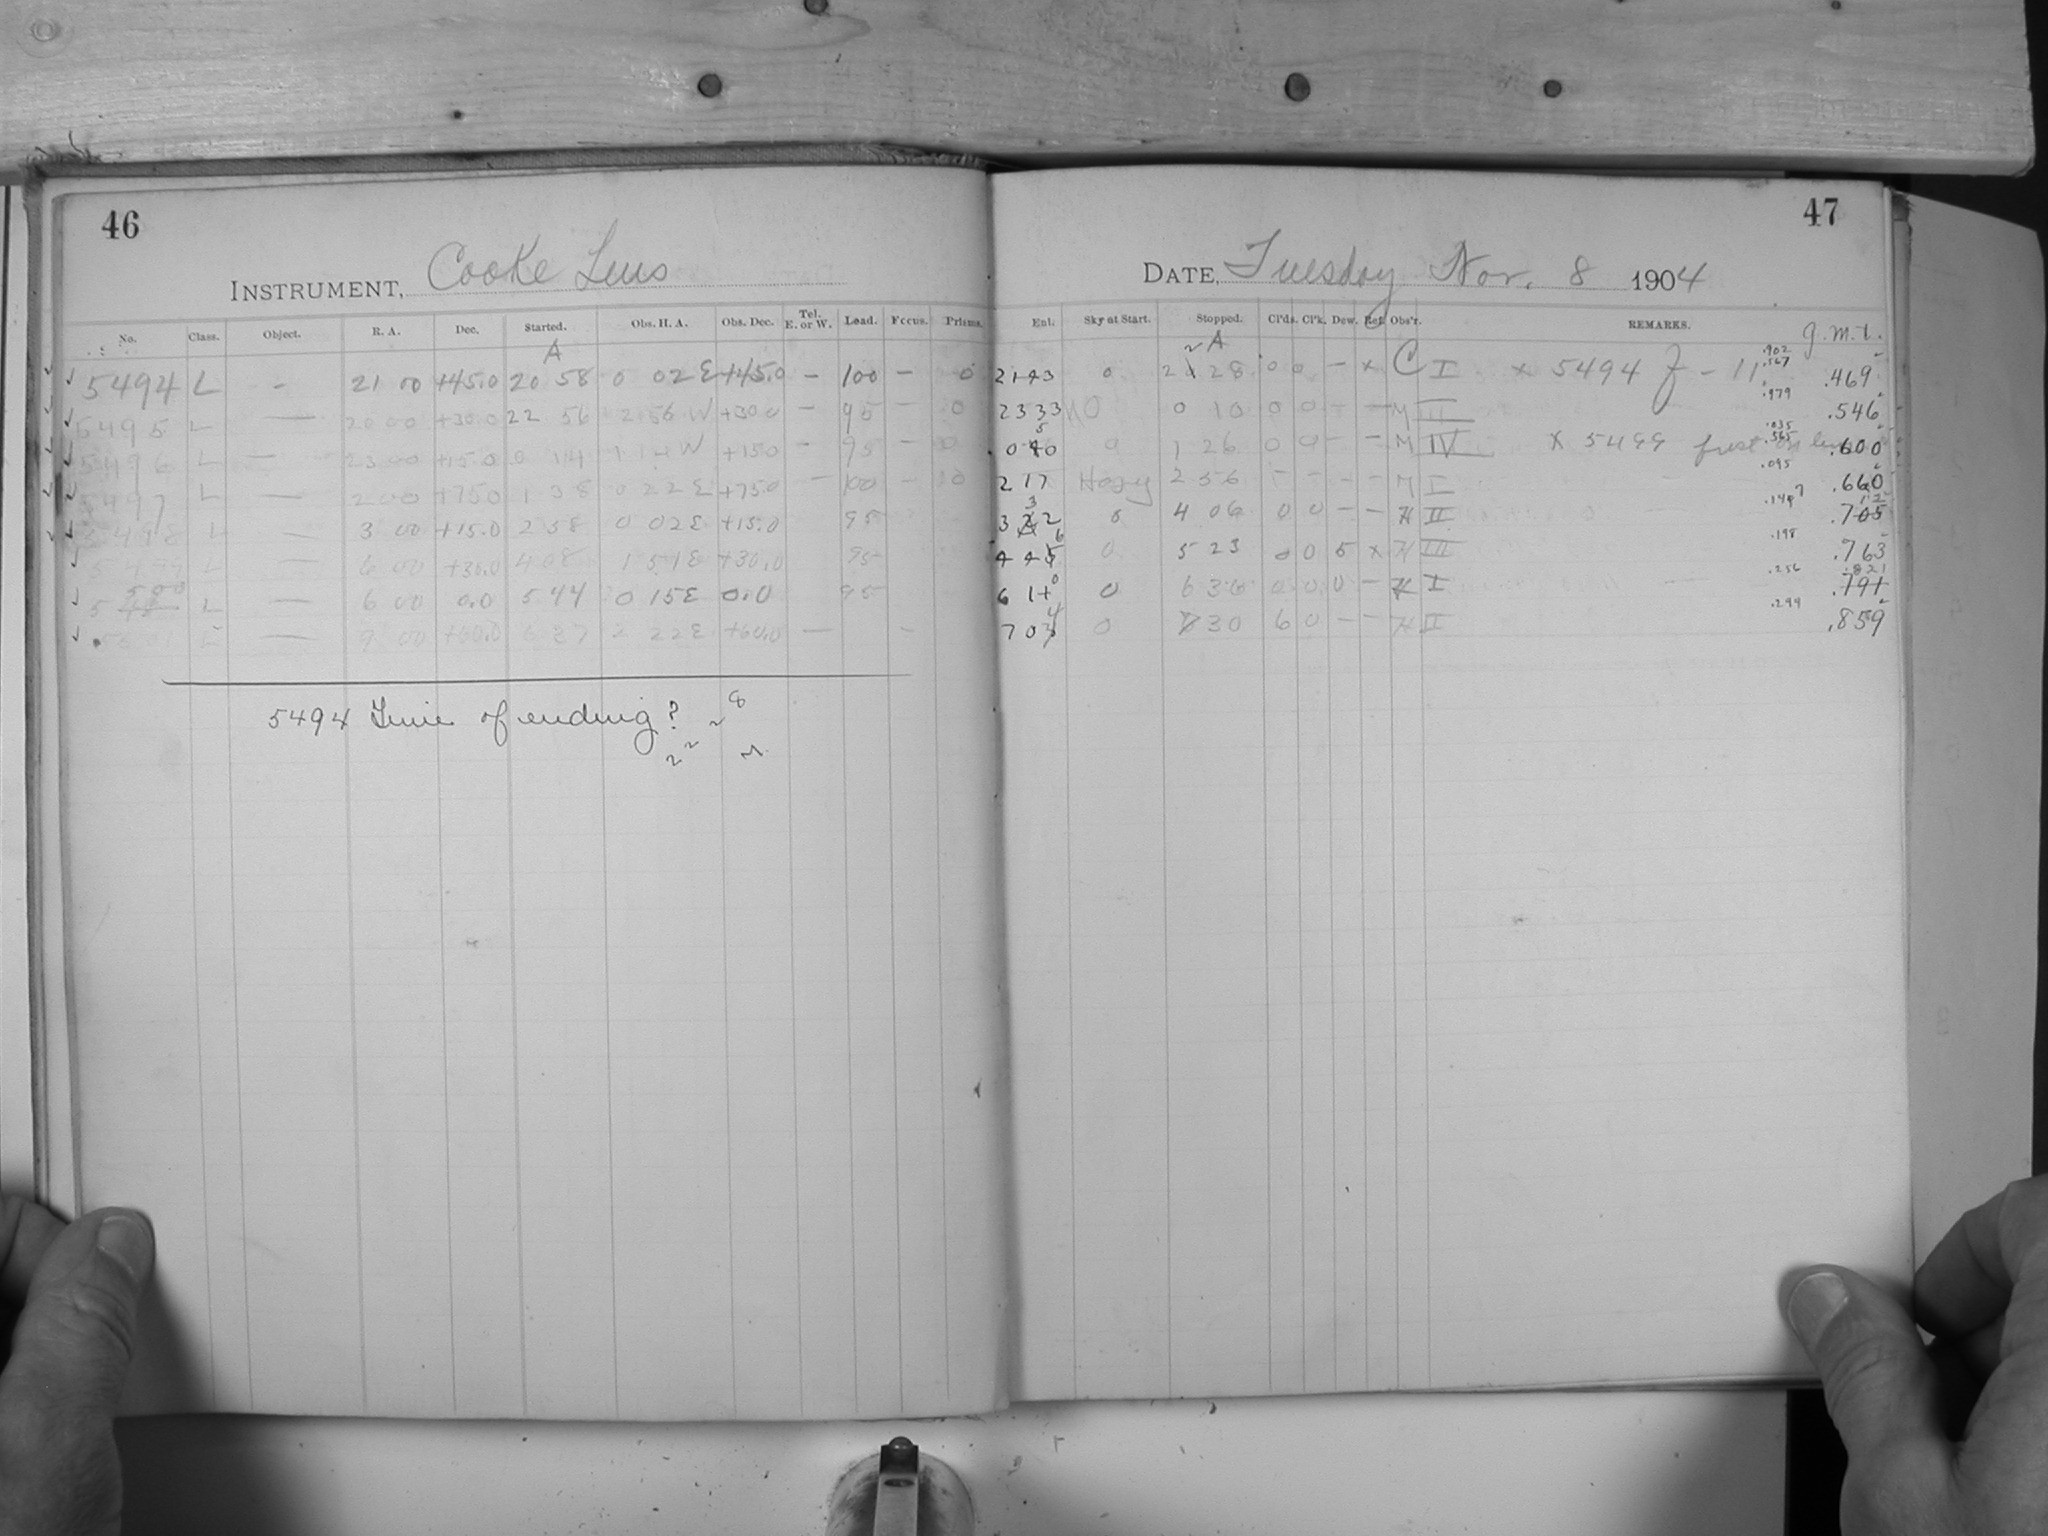 46
INSTRUMENT, Cooke Lens
No. Class. Object. R. A. Dec. Started. Obs. H. A. Obs. Dec. Tel. E. or W. Load. Focus. Prisms.
A
5494 L - 21 00 +45.0 20 58 0 02 E +45.0 - 100 - 0
5495 L — 20 00 +30.0 22 56 2 56 W +30.0 - 95 - 0
5496 L — 23 00 +15.0 0 14 1 14 W +15.0 - 95 - 0
5497 L — 2 00 +75.0 1 38 0 22 E +75.0 - 100 - 0
5498 L — 3 00 +15.0 2 58 0 02 E +15.0 95
5499 L — 6 00 +30.0 4 08 1 51 E +30.0 95
5500 L — 6 00 0.0 5 44 0 15 E 0.0 95
L — 9 00 +60.0 6 37 2 22 E +60.0 — -
5494 Time of ending? 8
47
DATE, Tuesday Nov. 8 1904
Ent. Sky at Start. Stopped. Cl'ds. Cl'k. Dew. Ref. Obs'r. REMARKS. G.M.T.
A
21 43 0 2 28 0 0 - x C I x 5494 J - 11 .902 .567 .469
23 33 0 0 10 0 0 - - M III .979 .546
0 50 0 1 26 0 0 - - M IV x 5499 first .035 .565 .600
2 17 Hazy 2 56 - - - - M I .095 .660
3 32 0 4 06 0 0 - - H II .147 .712
4 46 0 5 23 0 0 5 x H III .198 .763
6 10 0 6 36 0 0 0 - H I .256 .821
7 04 0 7 30 6 0 - - H II .294 .859